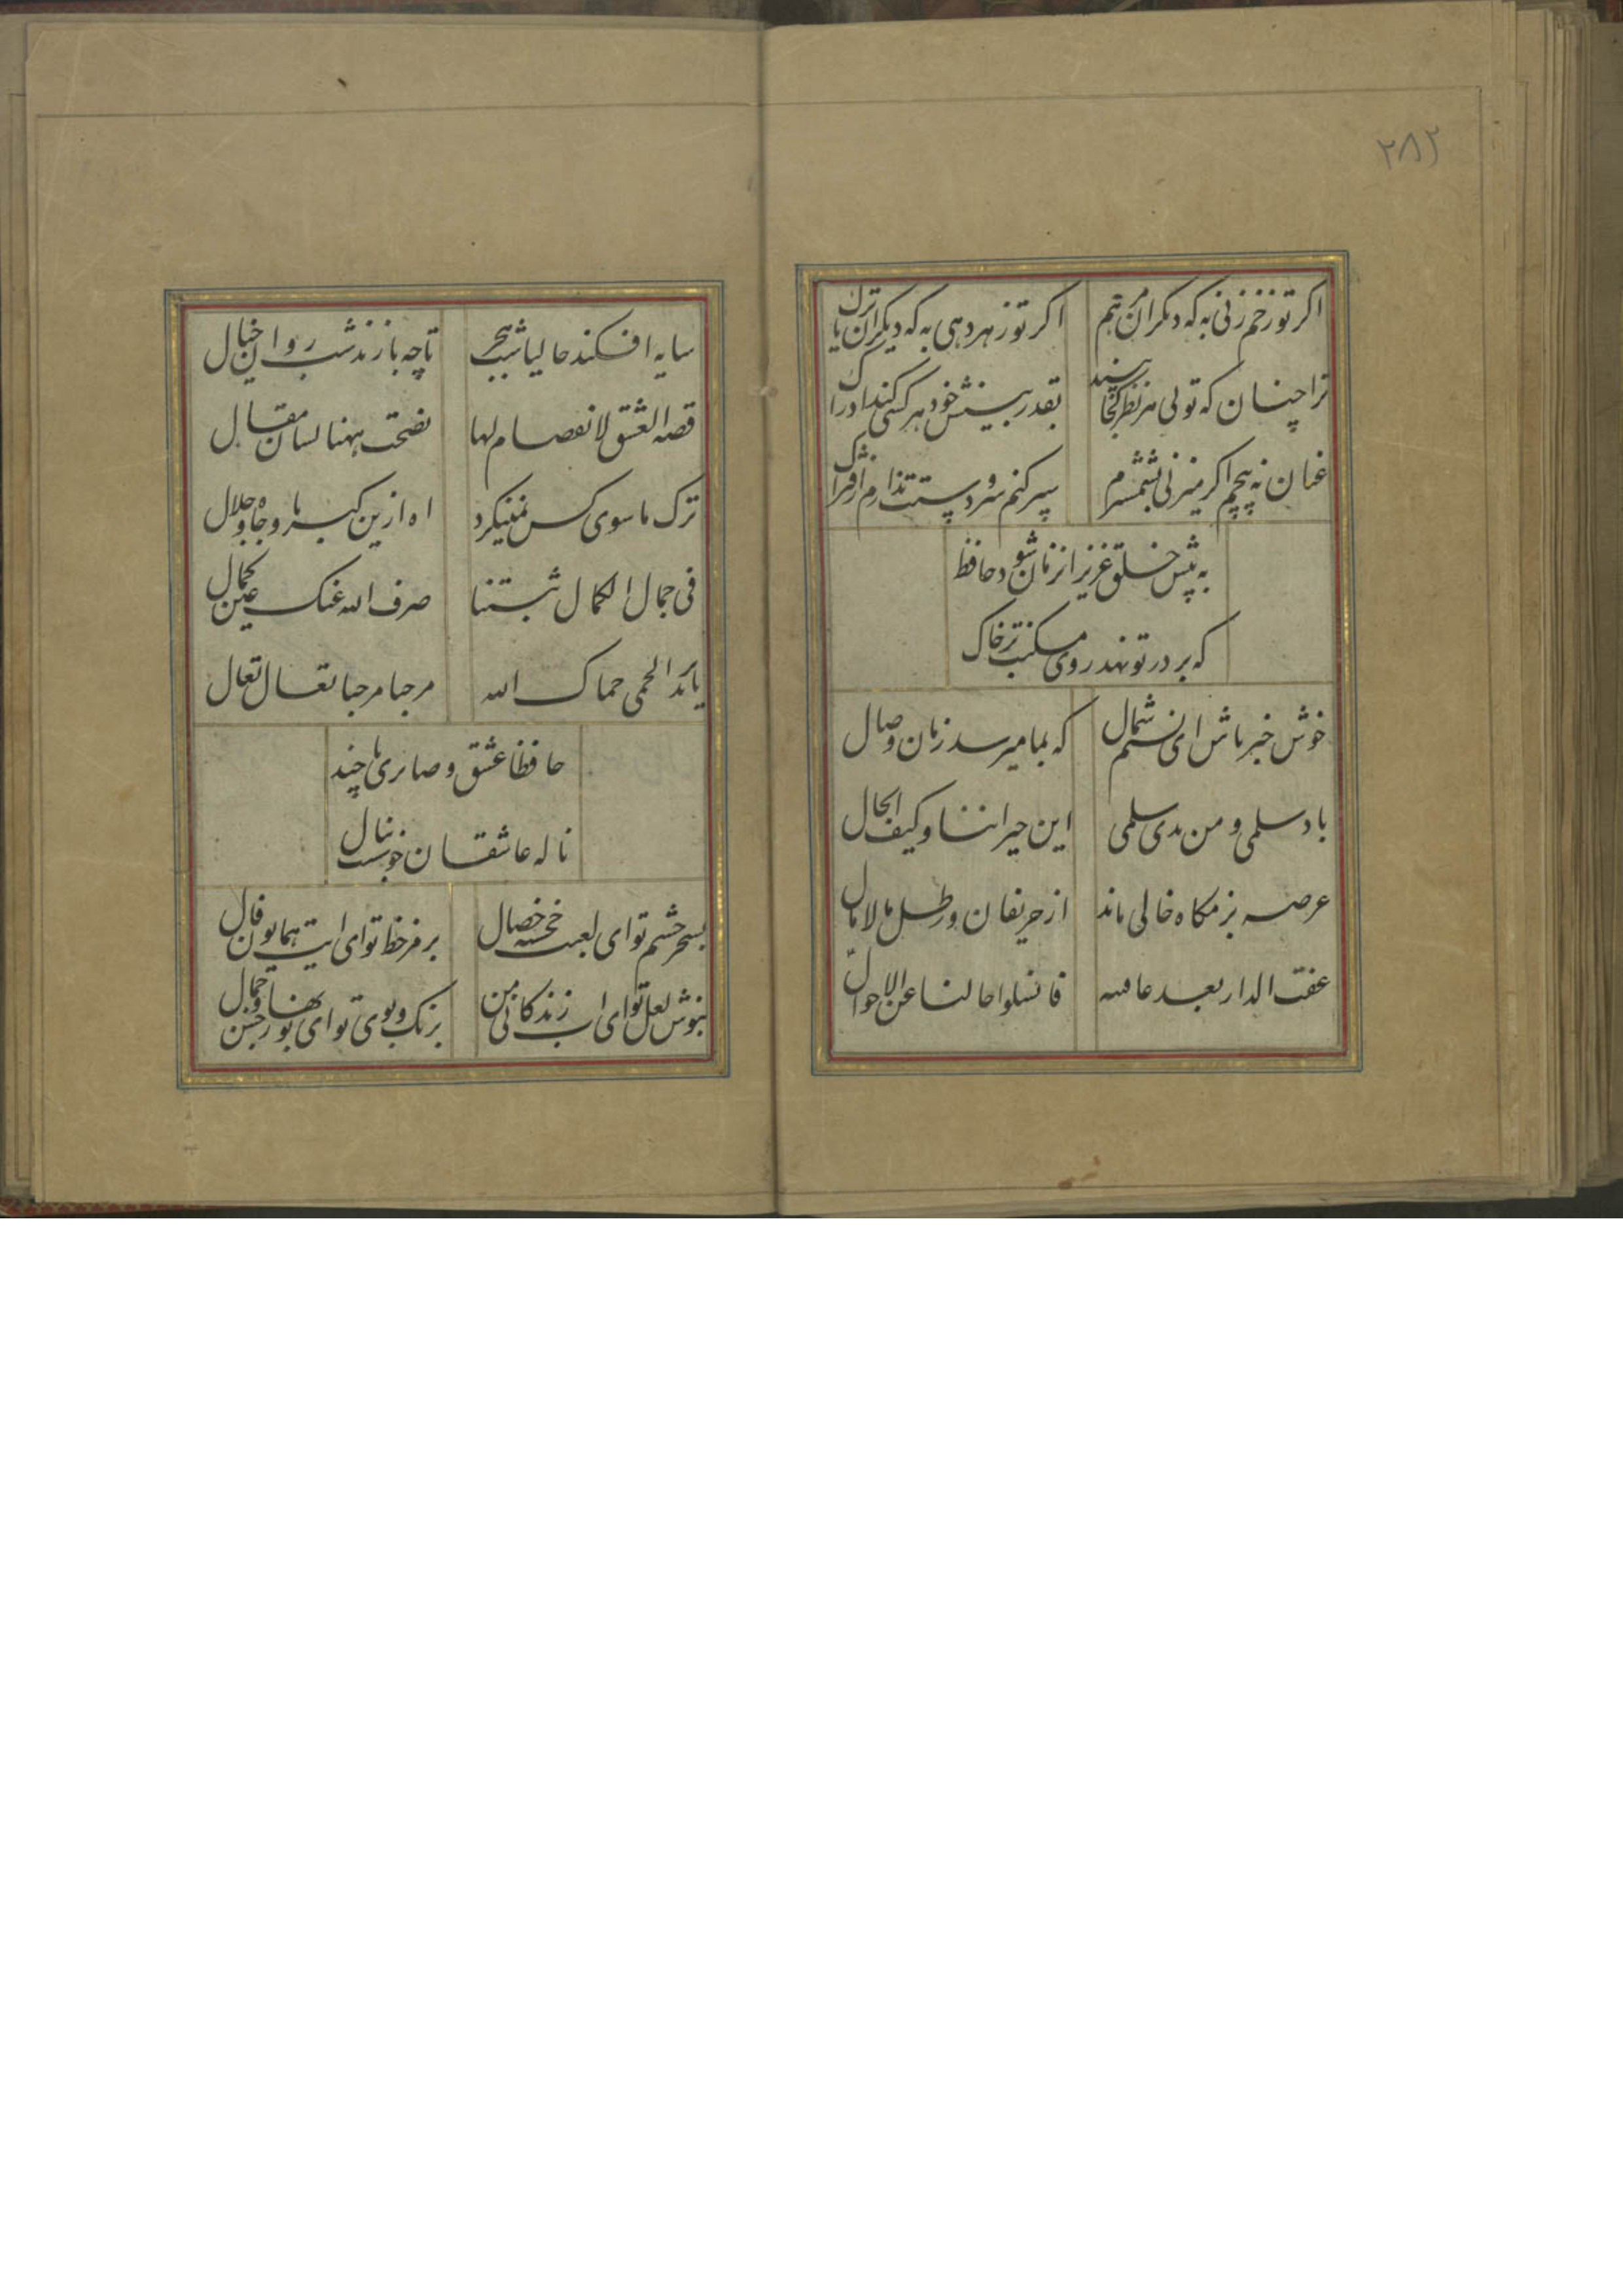 ۲۸۲
اکر تو زخم زنی به که دیکران مرهم
اکر تو زهر دهی به که دیکران تریاک
ترا چنان که تویی هر نظر کجا بیند
بقدر بینش خود هر کسی کند ادراک
عنان نه پیچم اکر میزنی بشمشیرم
سپر کنم سر و دستت ندارم از فتراک
به پیش خلق عزیز از زمان شود حافظ
که بر در تو نهد روی مسکنت بر خاک
خوش خبر باش ای نسیم شمال
که بما میرسد زمان وصال
یاد سلمی و من بدی سلمی
این جیراننا و کیف الحال
عرصه بزمکاه خالی ماند
از حریفان و رطل مالامال
عفت الدار بعد عافیه
فانسلوا حالنا عن الاحوال
سایه افکند حالیا شب هجر
تا چه بازند شب روان خیال
قصه العشق لا انفصام لها
فصحت ههنا لسان مقال
ترک ما سوی کس نمینکرد
اه ازین کبریا و جاه و جلال
فی جمال الکمال
صرف الله عنک عین کمال
یا برید الحمی حماک الله
مرحبا مرحبا تعال تعال
حافظا عشق و صابری تا چند
ناله عاشقان خوشست بنال
بسحر چشم تو ای لعبت خجسته خصال
برمز خط تو ای ایت همایون فال
بنوش لعل تو ای اب زندکانی من
برنک و بوی تو ای نوبهار حسن و جمال